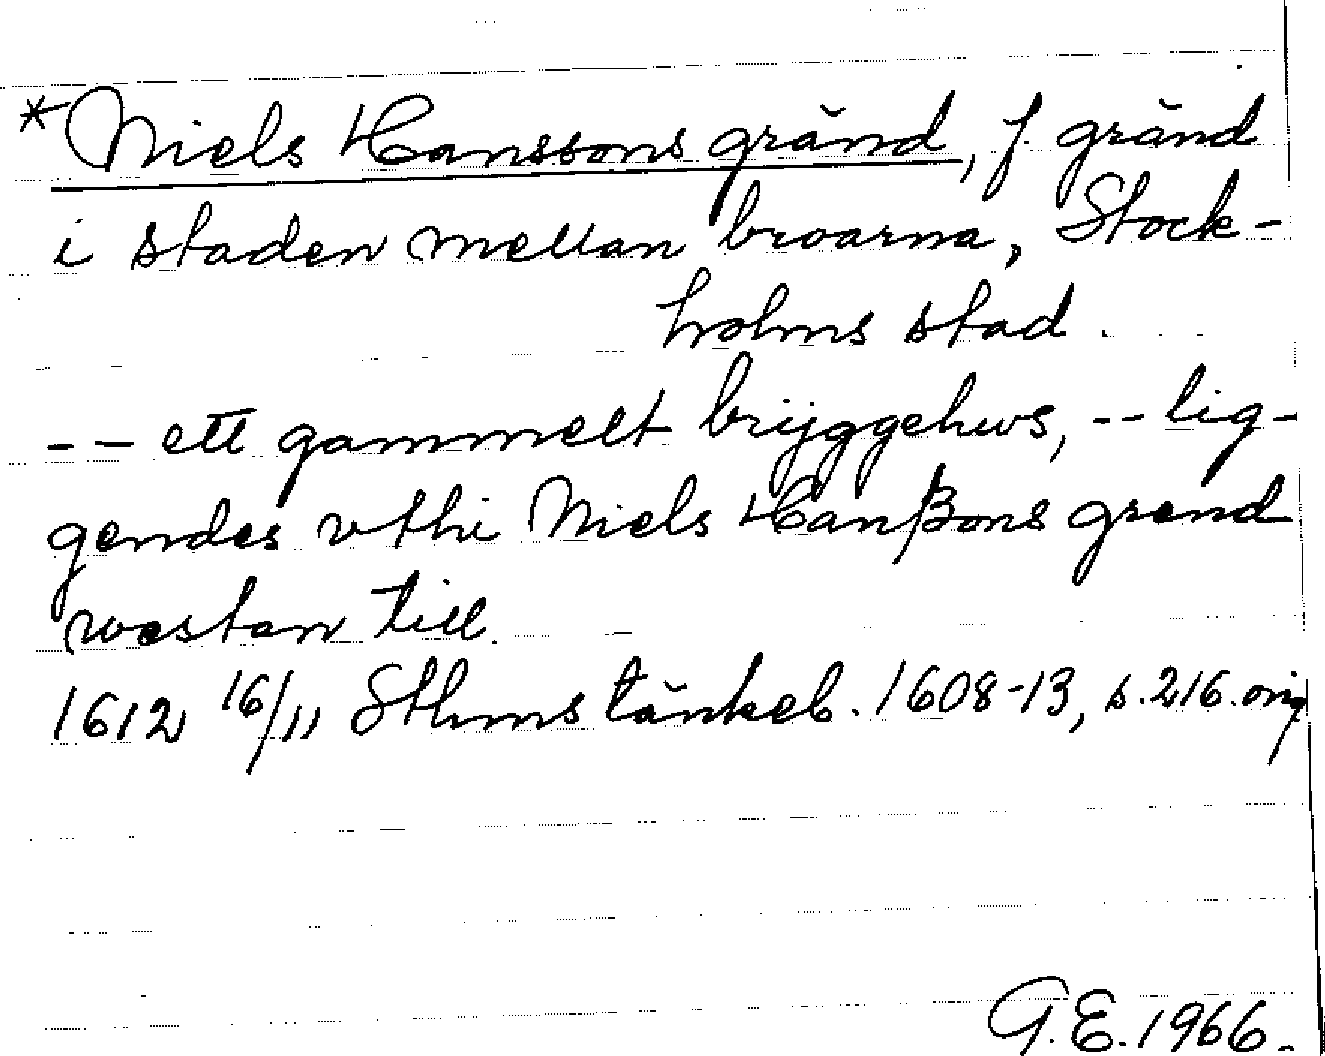 *Niels Hanssons gränd, f. gränd
i staden mellan broarna, Stock-
holms stad.
-- ett gammelt brijggehws, -- lig-
gendes vthi Niels Hanßons grend
wæstan till.
1612 16/11 Sthms tänkeb. 1608-13, s. 216. orig
G.E. 1966.